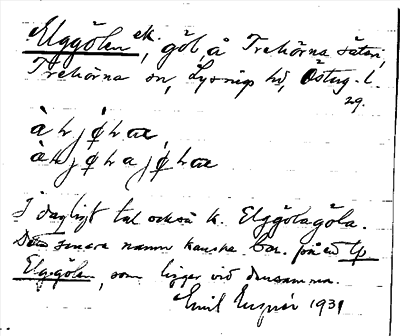 Elggölen ek., göl, å Trehörna säteri,
Trehörna sn, Lysings hd, Östug. l.
29.
I dagligt tal också k. Elggölagöla.
Detta senare namn kanske ber. på ett tp
Elggölen, som ligger vid densamma.
Emil 1931